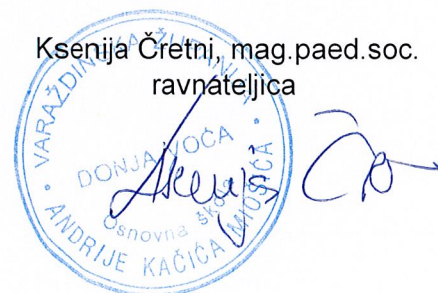 Ksenija Čretni, mag.paed.soc.
ravnateljica
VARAŽDINSKA ŽUPANIJA
DONJA VOĆA
Osnovna škola
ANDRIJE KAČIĆA MIOŠIĆA